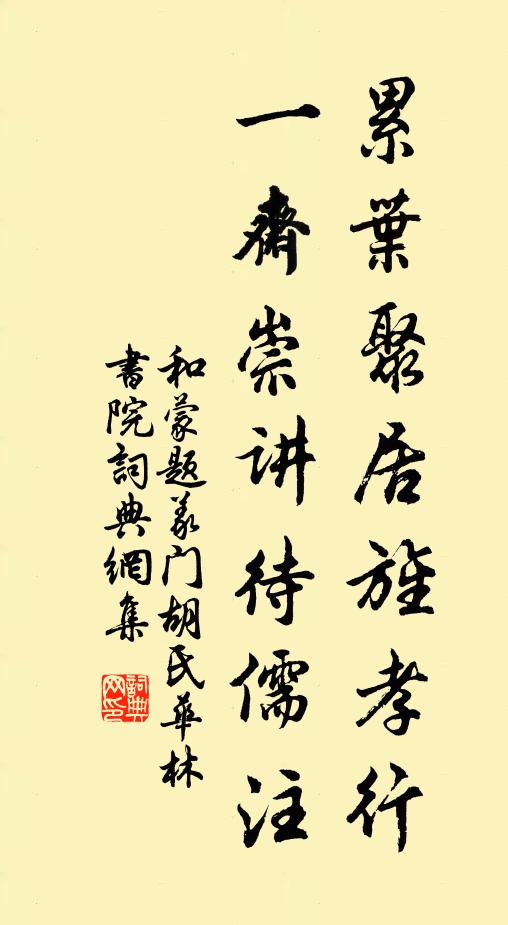 累葉聚居旌孝行
一齋崇讲待儒注
和蒙题義门胡氏華林
書院詞典網集
詞典网印